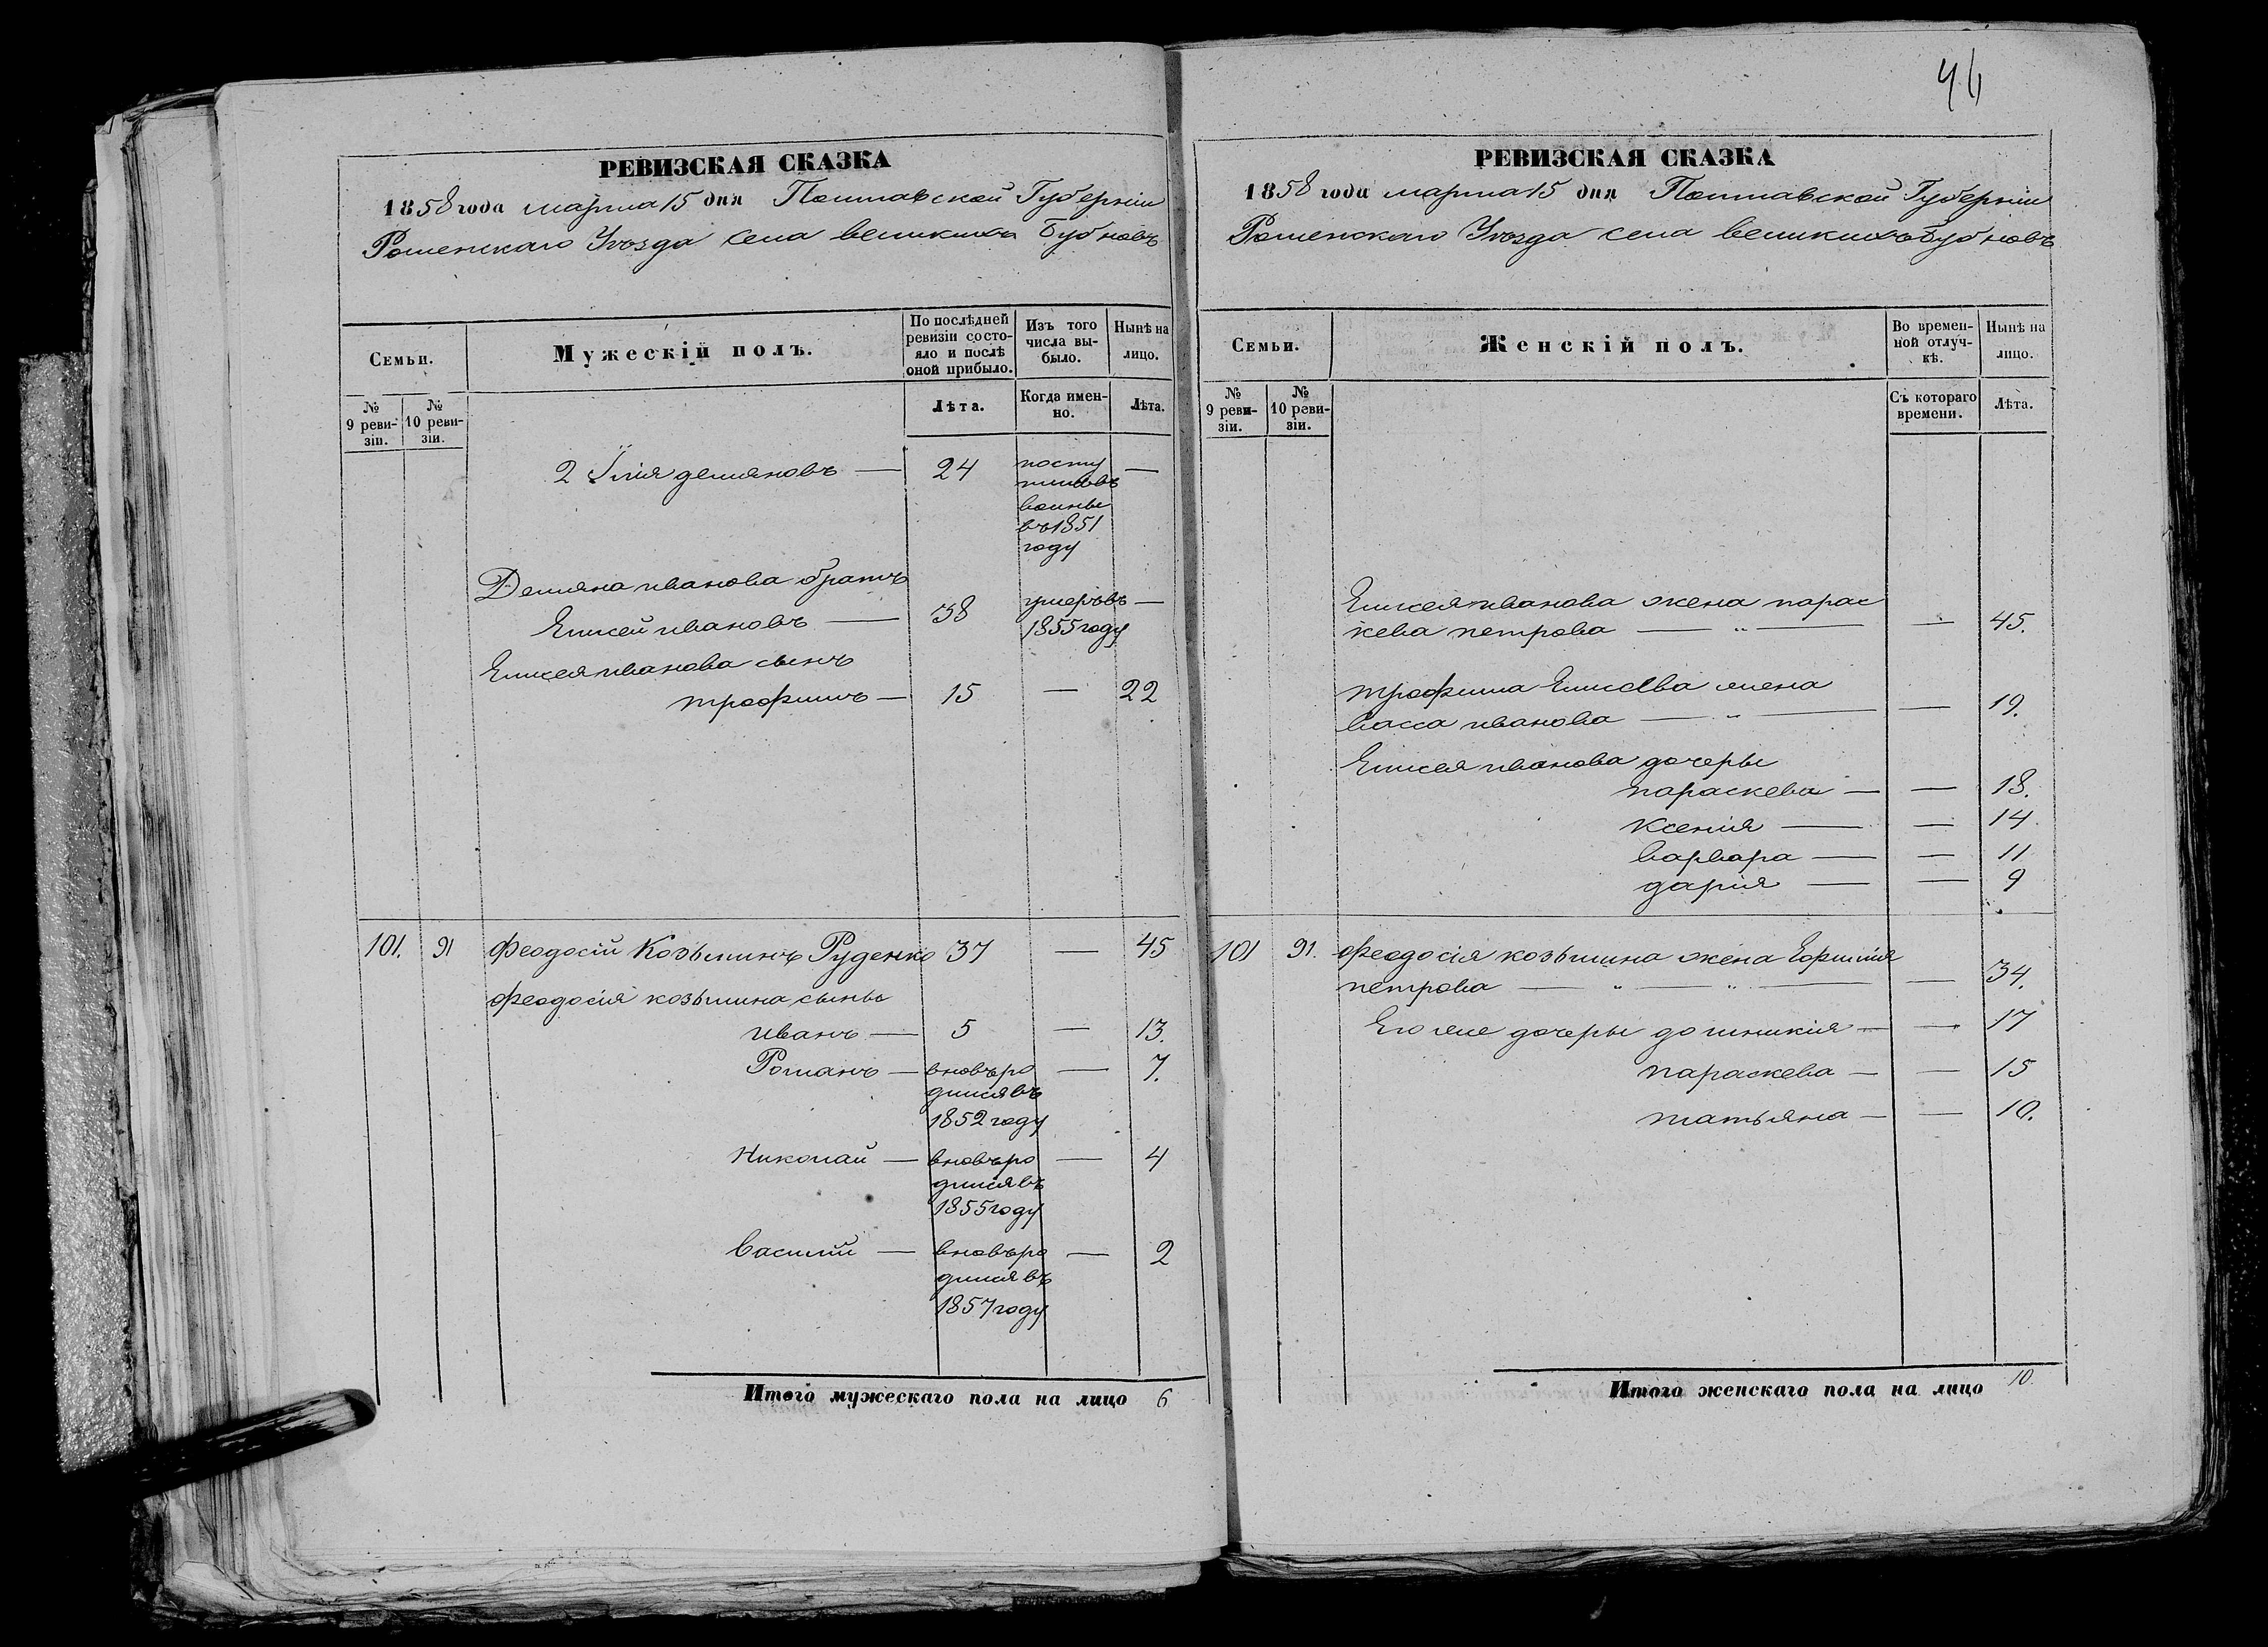 46
РЕВИЗСКАЯ СКАЗКА
1858 года марта 15 дня Полтавской Губерніи
Роменскаго Уѣзда села великихъ Бубновъ
Семьи.
Мужескій полъ.
По послѣдней ревизіи состояло и послѣ оной прибыло.
Изъ того числа выбыло.
Нынѣ на лицо.
№ 9 ревизіи.
№ 10 ревизіи.
Лѣта.
Когда именно.
Лѣта.
2 Ілія демяновъ — 24 посту —
пилъ въ
воины
въ 1851
году
Демяна иванова братъ
Елисей ивановъ — 38 умеръ въ —
1855 году
Елисея иванова сынъ
трофимъ — 15 — 22
101. 91 Феодосій Козьминъ Руденко 37 — 45
Феодосія козьмина сыны
иванъ — 5 — 13.
Романъ — вновь ро — 7.
дился въ
1852 году
Николай — вновь ро — 4
дился въ
1855 году
Василій — вновь ро — 2
дился въ
1857 году
Итого мужескаго пола на лицо 6
РЕВИЗСКАЯ СКАЗКА
1858 года марта 15 дня Полтавской Губерніи
Роменскаго Уѣзда села великихъ Бубновъ
Семьи.
Женскій полъ.
Во временной отлучкѣ.
Нынѣ на лицо.
№ 9 ревизіи.
№ 10 ревизіи.
Съ котораго времени.
Лѣта.
Елисея иванова жена парас
кева петрова — „ — — 45.
трофима Елисѣева жена
васса иванова — „ — — 19.
Елисея иванова дочеры
параскева — — 18.
Ксенія — — 14.
варвара — — 11
дарія — — 9
101 91. Феодосія козьмина жена Ефимія
петрова — „ — „ — — 34.
Его же дочеры домникія — — 17
параскева — — 15
татьяна — — 10.
Итого женскаго пола на лицо 10.